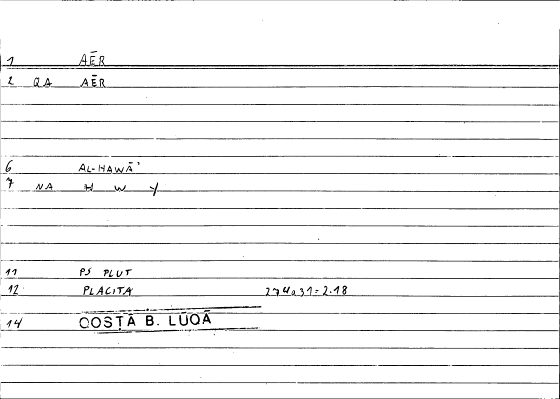 1 AĒR
2 QA AĒR
6 AL-HAWĀʾ
7 NA H W Y
11 PS PLUT
12 PLACITA 274a31=2.18
14 QOSṬĀ B. LŪQĀ